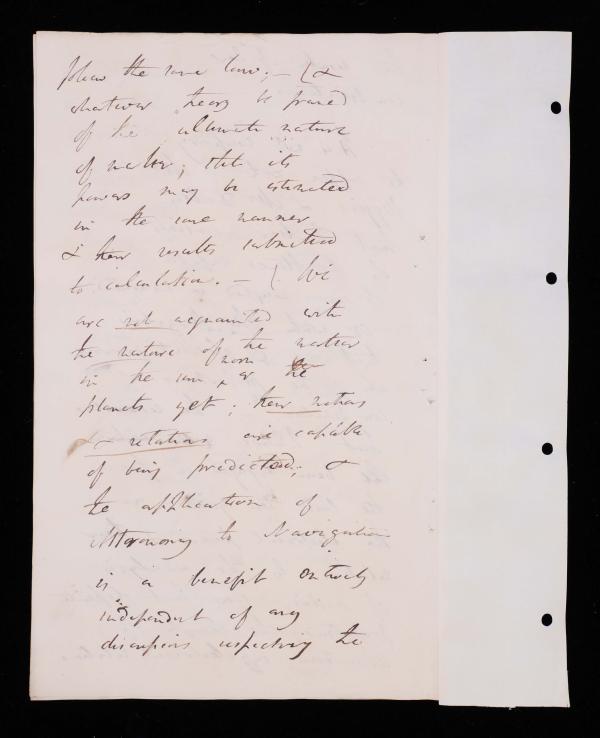 follow the same law; – (&
whatever theory be framed
of the ultimate nature
of matter; that its
powers may be estimated
in the same manner
& their results submitted
to calculation. – ( We
are not acquainted with
the nature of the matter
in the sun moon or the
planets yet; their motions
& relations are capable
of being predicted; &
the application of
Astronomy to Navigation
is a benefit entirely
independent of any
discussions respecting the